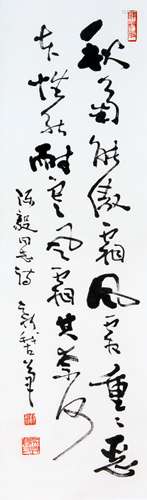 秋菊能傲霜风霜重重恶
本性能耐寒风霜其奈何
陈毅同志诗